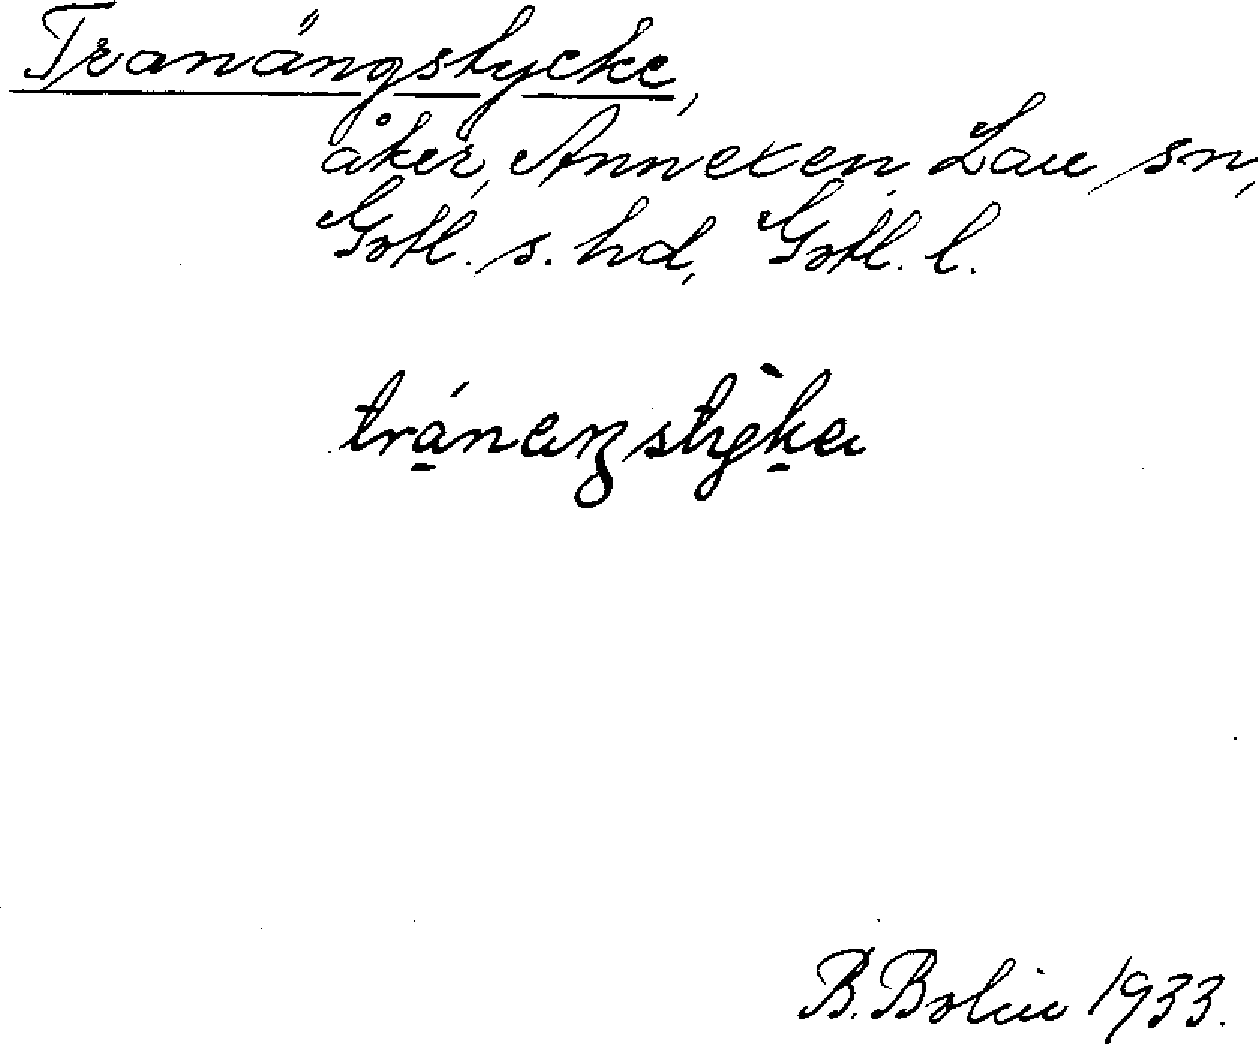 Tranängstycke,
åker, Annexen, Lau sn,
Gotl. s. hd, Gotl. l.
B. Bolin 1933.